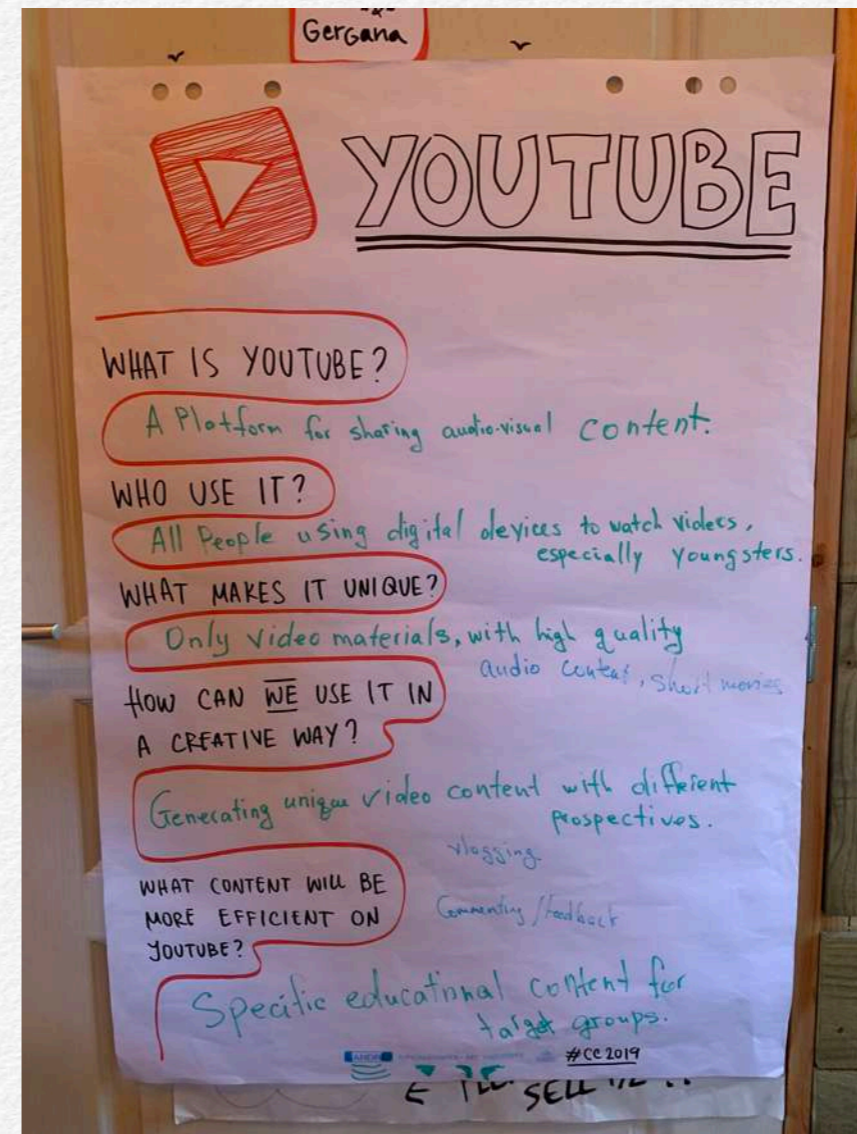 Gergana
YOUTUBE
WHAT IS YOUTUBE?
A Platform for sharing audio-visual content.
WHO USE IT?
All People using digital devices to watch videos,
especially Youngsters.
WHAT MAKES IT UNIQUE?
Only video materials, with high quality
audio content, short movies
HOW CAN WE USE IT IN
A CREATIVE WAY?
Generating unique video content with different
prospectives.
vlogging
WHAT CONTENT WILL BE
MORE EFFICIENT ON
YOUTUBE?
Commenting / feedback
Specific educational content for
target groups.
#CC2019
SELL